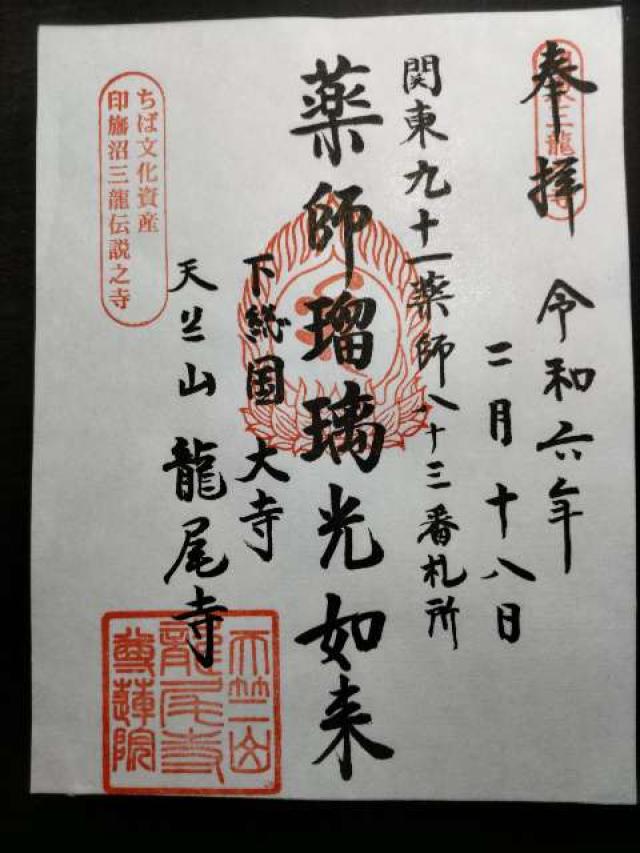 奉拝
令和六年
二月十八日
関東九十一薬師八十三番札所
薬師瑠璃光如来
下総国 大寺
天竺山 龍尾寺
ちば文化資産
印旛沼三龍伝説之寺
天竺山
龍尾寺
尊蓮院